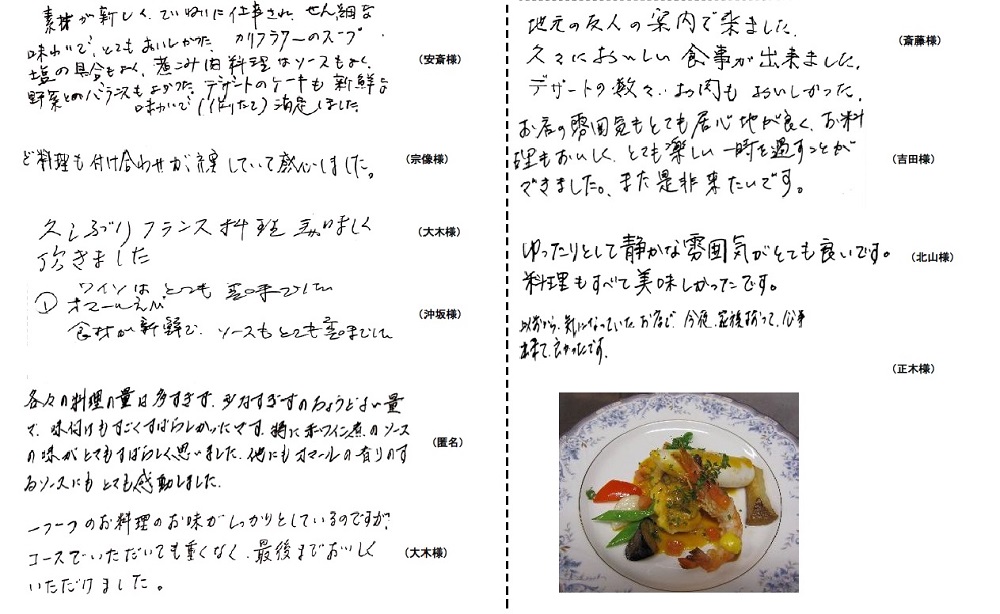 素材が新しく、ていねいに仕事され、せん細な
味わいで、とてもおいしかった カリフラワーのスープ
塩の具合もよく、煮こみ肉料理なソースもよく、
野菜とのバランスもよかった デザートのケーキも新鮮な
味わいで(作りたて)満足しました
(安斎様)
ど料理も付け合わせが していて感心しました。
(宗像様)
久しぶりフランス料理 美味しく
頂きました
(大木様)
ワインはとても 美味でした
① オマールえび
食材が新鮮で、ソースもとても美味でした
(沖坂様)
各々の料理の量は多すぎず、少なすぎずのちょうどよい量
で、味付けもすごくすばらしかったです。特に赤ワイン煮のソース
の味がとてもすばらしく思いました。他にもオマールの香りのす
るソースにもとても感動しました。
(匿名)
一つ一つのお料理のお味がしっかりとしているのですが、
コースでいただいても重くなく、最後までおいしく
いただけました。
(大木様)
地元の友人の案内で来ました。
久々においしい食事が出来ました。
デザートの数々、お肉もおいしかった。
(斎藤様)
お店の雰囲気もとても居心地が良く、お料
理もおいしく、とても楽しい一時を過すことが
できました。また是非来たいです。
(吉田様)
ゆったりとして静かな雰囲気がとても良いです。
料理もすべて美味しかったです。
(北山様)
以前から、気になっていたお店で、今夜、 食事
出来て、良かったです。
(正木様)